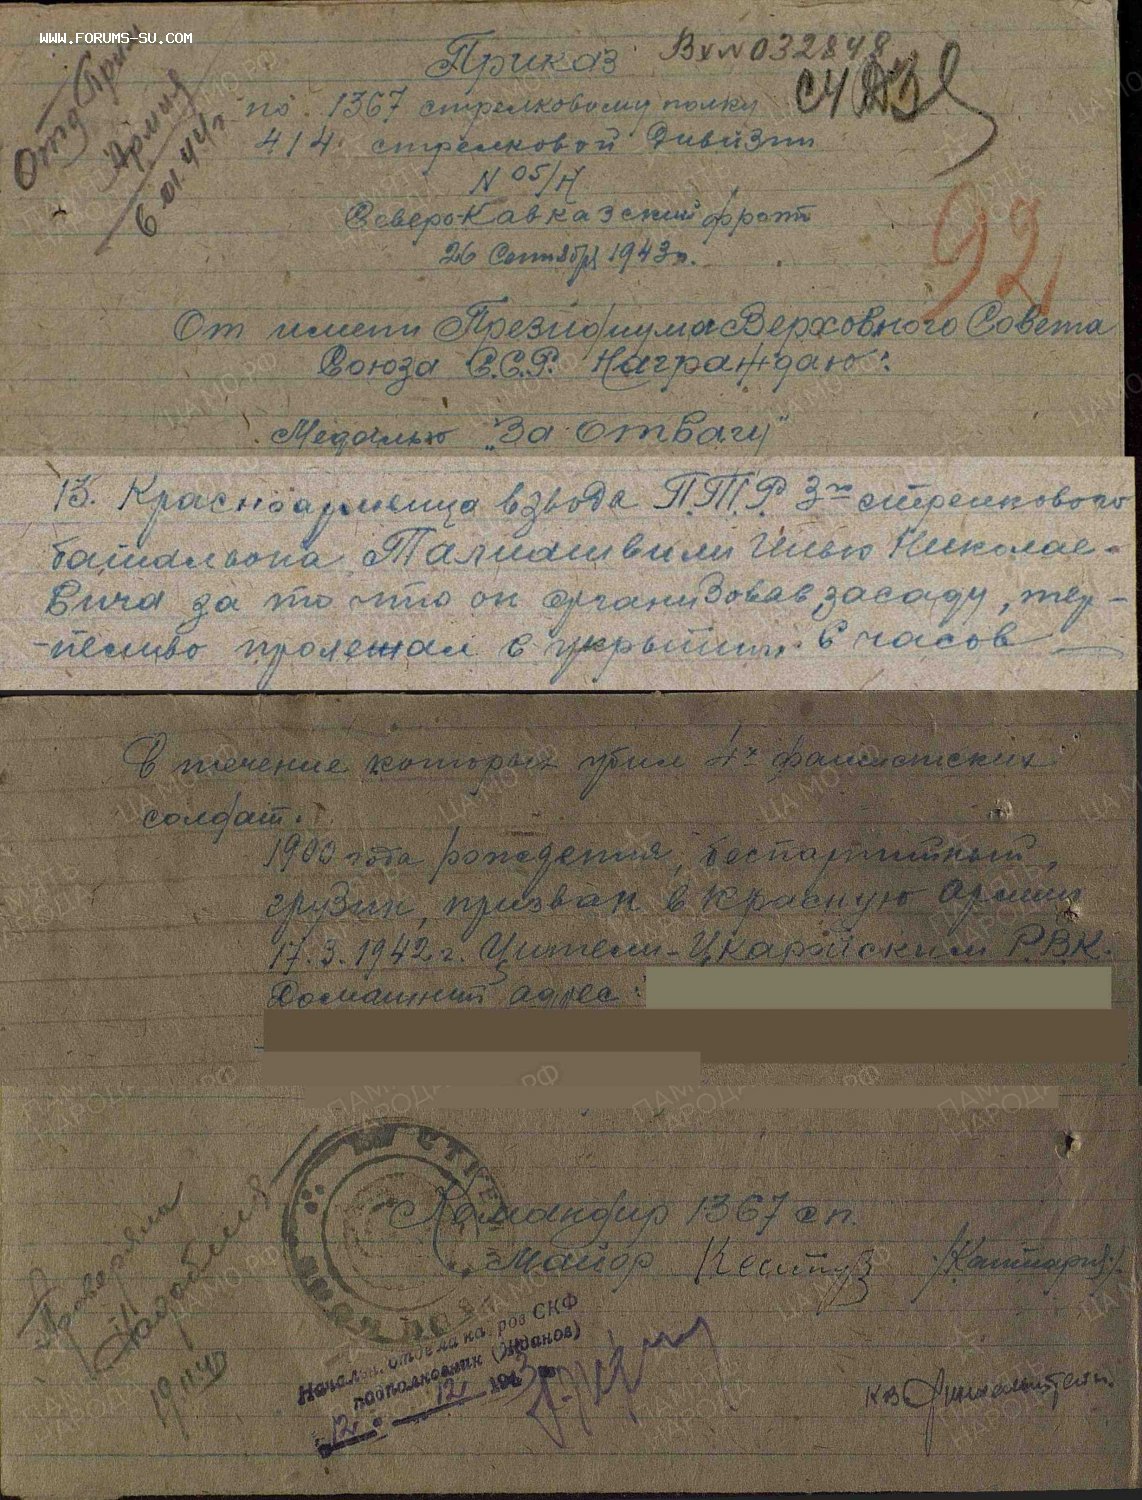 www.forums-su.com
Приказ Вх№032848
по 1367 стрелковому полку
414 стрелковой Дивизии
N 05/Н
Северо-Кавказский фронт
26 Сентября 1943г.
6.01.44г
92
От имени Президиума Верховного Совета
Союза С.С.Р. Награждаю:
Медалью "За Отвагу"
13. Красноармейца взвода П.Т.Р. 3го стрелкового
баталвона Талиашвили Илью Николае-
вича за то что он организовав засаду, тер-
-пеливо пролежал в укрытии 6 часов
В течение которых убил 4х фашистских
солдат.
1900 года рождения, беспартийный,
грузин, призван в Красную Армию
17.3.1942г. Цители-Цкаройским Р.В.К.
Домашний адрес:
Командир 1367 сп.
Майор
Проверяла
Начальн. отдела кадров СКФ
подполковник (Жданов)
12 12 1943